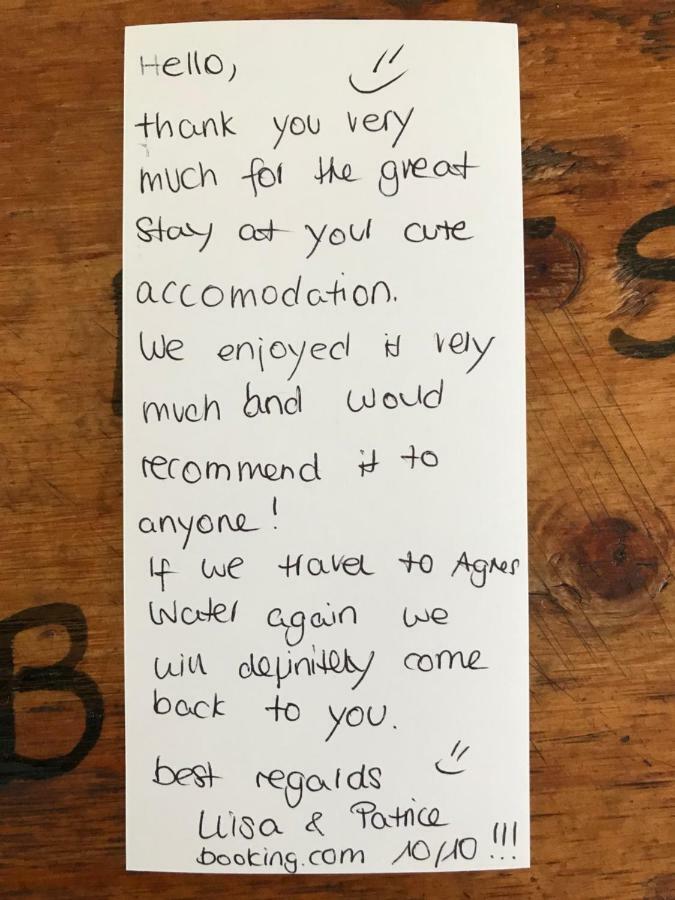 Hello,
thank you very
much for the great
stay at your cute
accomodation.
We enjoyed it very
much and would
recommend it to
anyone!
If we travel to Agnes
Water again we
will definitely come
back to you.
best regards
Luisa & Patrice
booking.com 10/10 !!!
B
S